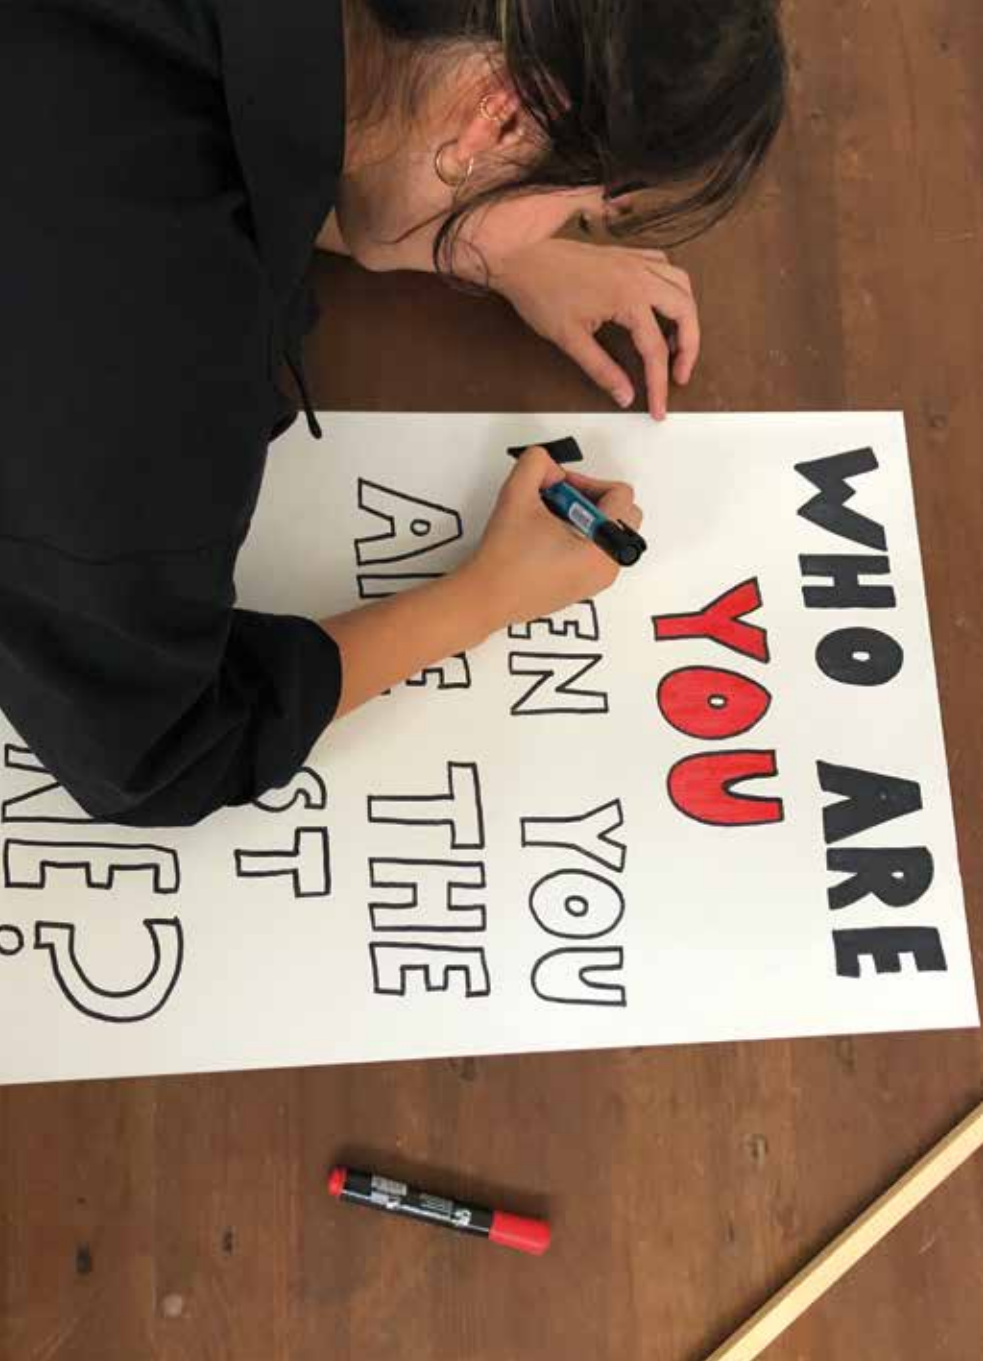 WHO ARE
YOU
EN YOU
ARE THE
ST
NE?